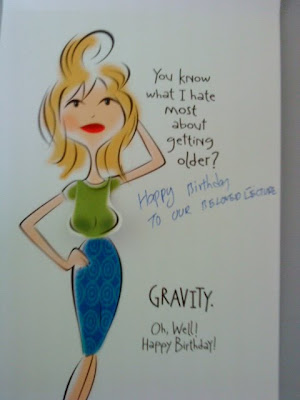 You know
what I hate
most
about
getting
older?
Happy Birthday
TO OUR BELOVED LECTURE
GRAVITY.
Oh, Well!
Happy Birthday!